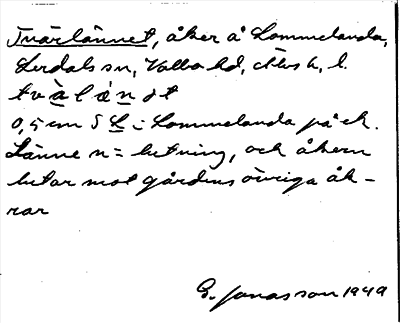 Tvärlännet, åker å Lommelanda,
Lerdals sn, Valbo hd, Älvsb. l.
tvà̱l ǻ n̠ ət
0,5 cm S L i Lommelanda på ek.
Länne n = lutning, och åkern
lutar mot gårdens övriga åk-
rar
G. Jonasson 1949